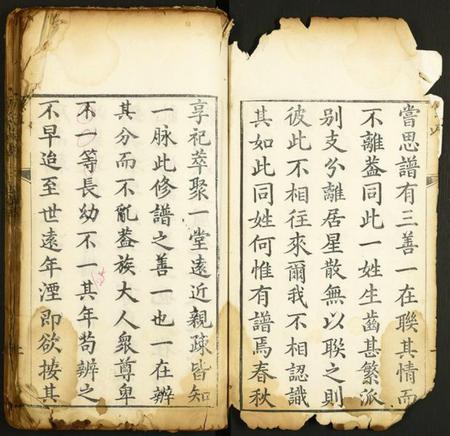 嘗思譜有三善一在聯其情而
不離葢同此一姓生齒甚繁派
别支分離居星散無以聯之則
彼此不相徃來爾我不相認識
其如此同姓何惟有譜焉春秋
享祀萃聚一堂遠近親疎皆知
一脉此修譜之善一也一在辨
其分而不亂葢族大人衆尊卑
不一等長幼不一其年苟辨之
不早迨至世遠年湮即欲按其